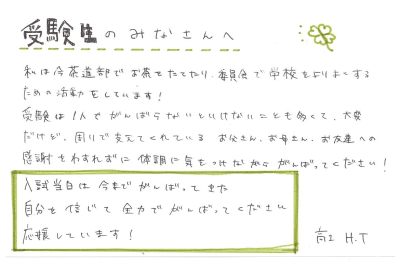 受験生のみなさんへ
私は今茶道部でお茶をたてたり、委員会で学校をよりよくする
ための活動をしています！
受験は1人でがんばらないといけないことも多くて、大変
だけど、周りで支えてくれている お父さん、お母さん、お友達への
感謝をわすれずに 体調に気をつけながらがんばってください！
入試当日は今までがんばってきた
自分を信じて全力でがんばってください
応援しています！
高2 H.T